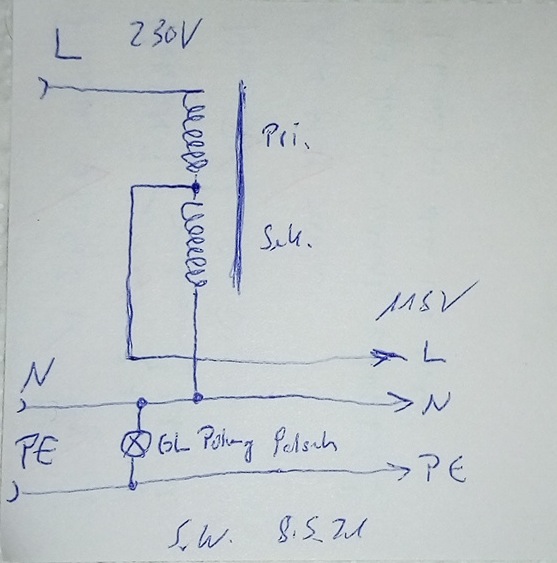 L 230V
Pri.
Sek.
115V
L
N
N
PE
GL Polung Falsch
PE
S.W. 8.5.21